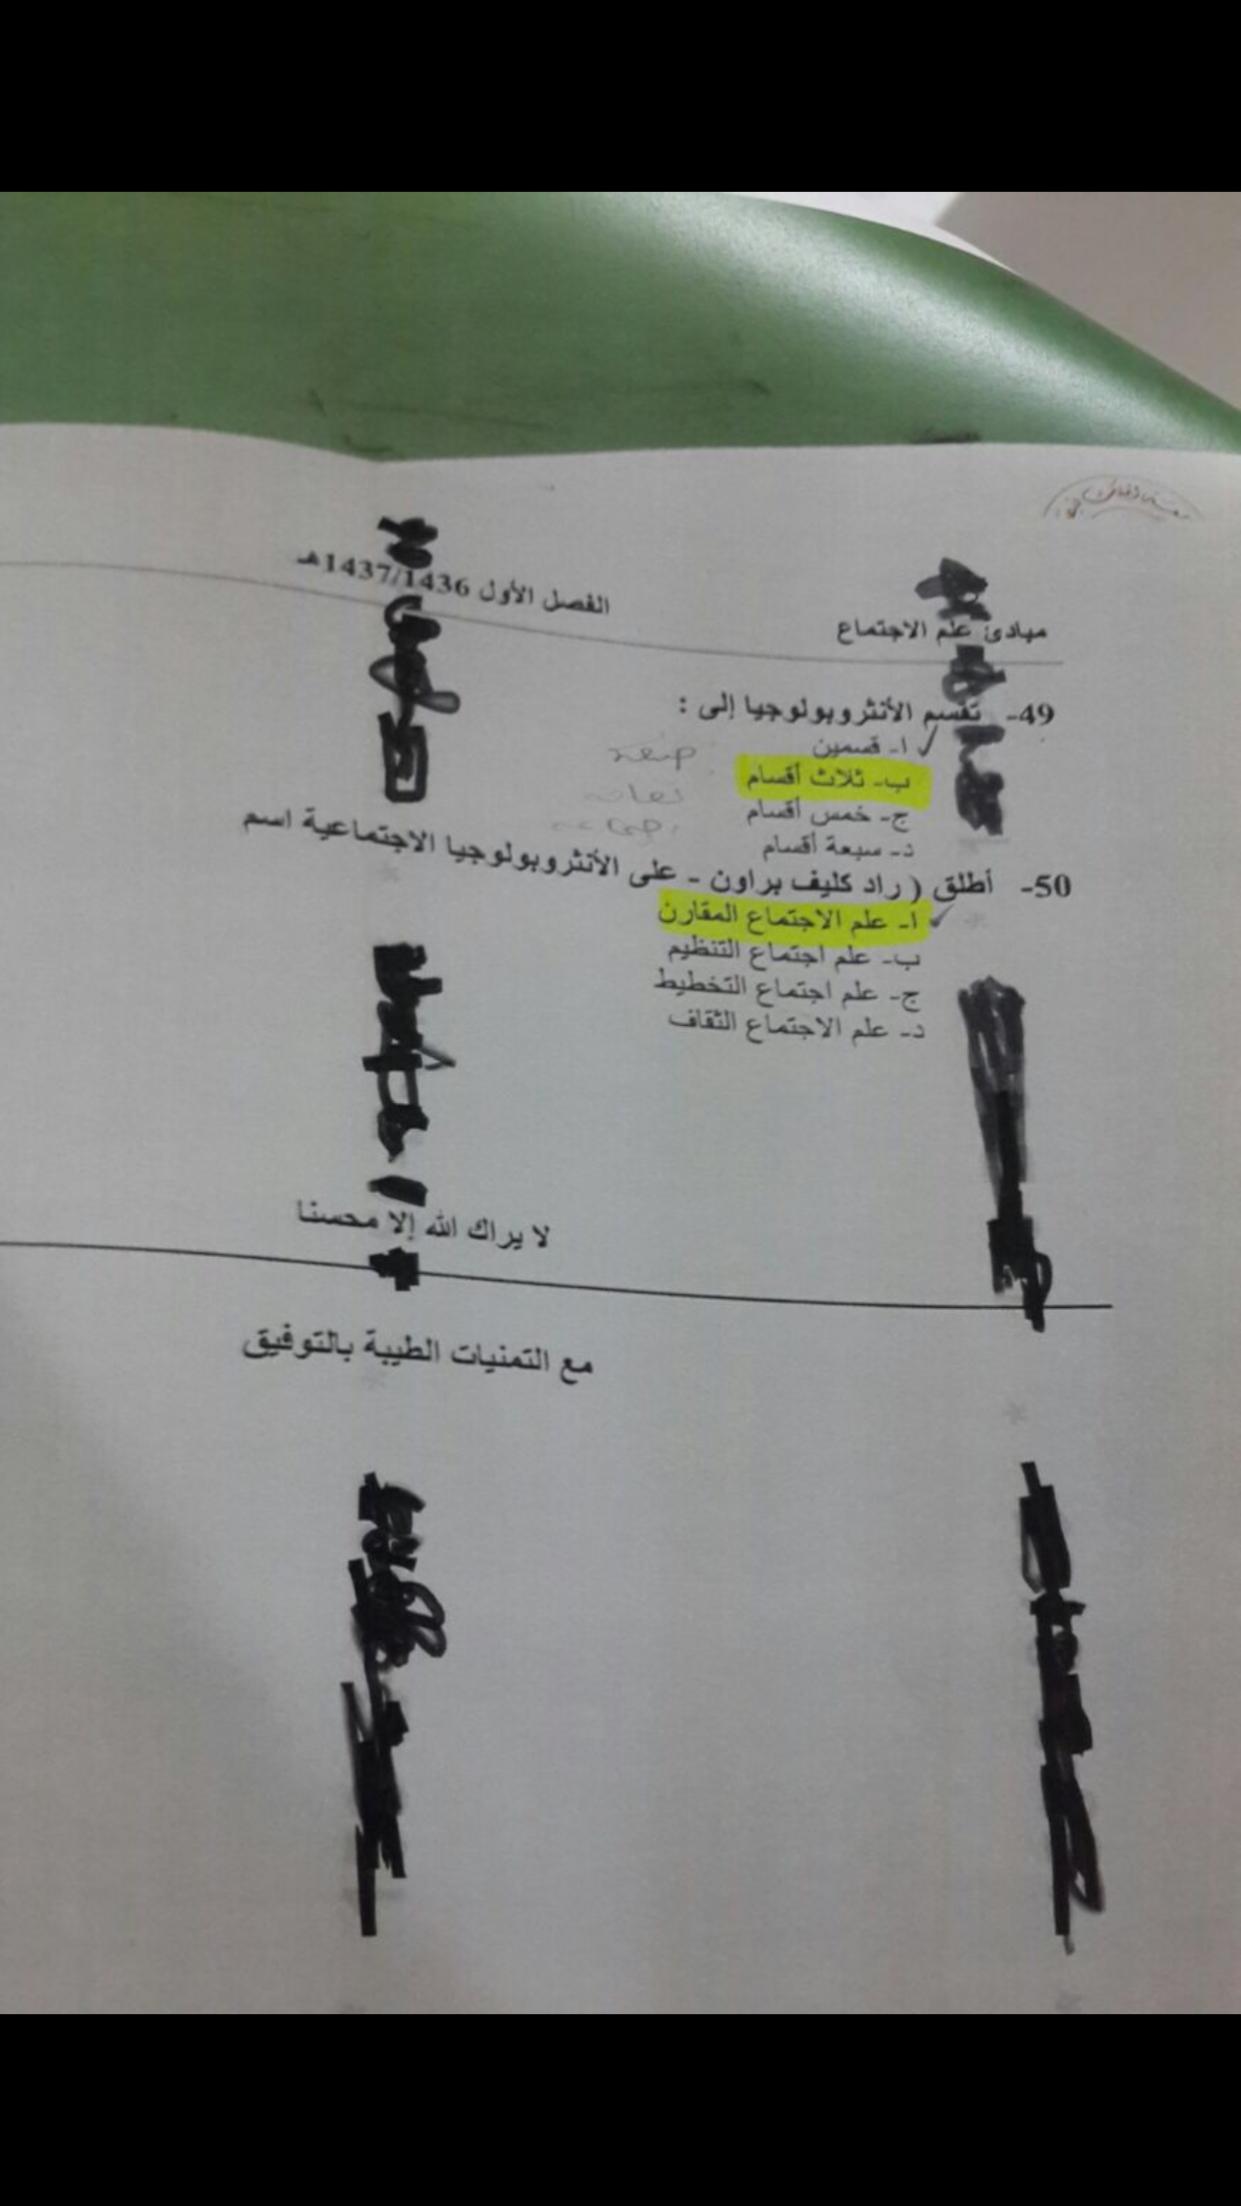 مبادئ علم الاجتماع
الفصل الأول 1437/1436هـ
49- تقسم الأنثروبولوجيا إلى :
ا- قسمين
ب- ثلاث أقسام
ج- خمس أقسام
د- سبعة أقسام
50- أطلق ( راد كليف براون - على الأنثروبولوجيا الاجتماعية اسم
ا- علم الاجتماع المقارن
ب- علم اجتماع التنظيم
ج- علم اجتماع التخطيط
د- علم الاجتماع الثقاف
لا يراك الله إلا محسنا
مع التمنيات الطيبة بالتوفيق